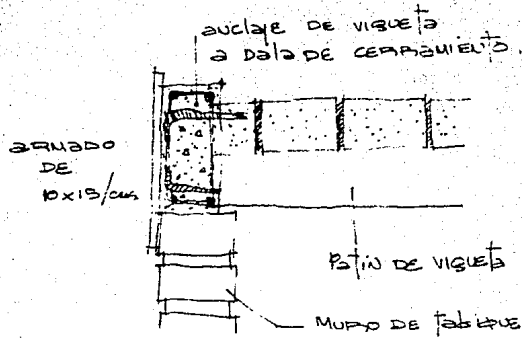 anclaje DE VIGUETA
a Dala DE CERRAMIENTO.
ARMADO
DE
10x15/cms
PATIN DE VIGUETA
MURO DE TABIQUE